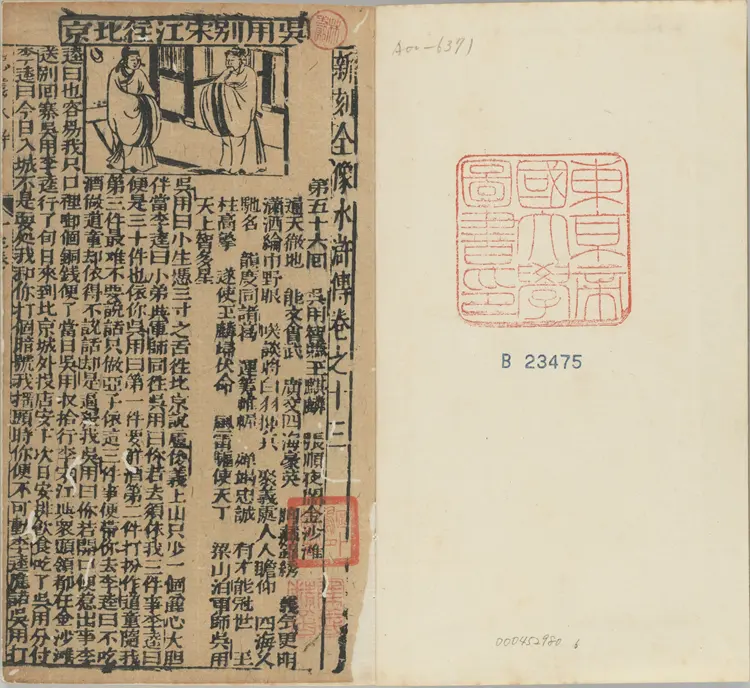 A00-6371
東京帝
國大學
圖書印
B 23475
000452980 6
吳用别宋江徃北京
新刻全像水滸傳卷之十三
第五十六回 吳用智賺玉麒麟 張順夜閙金沙灘
遍天徹地 能文會武 廣交四海豪英 胸藏錦綉 義气更明
瀟洒綸巾野服 咲談將白羽揮兵 聚義處人人瞻仰 四海久
馳名 韻度同諸葛 運籌帷幄 殫竭忠誠 有才能冠世 玉
柱高擎 遂使玉麟歸伏命 風雷驅使天丁 梁山泊軍師吳用
天上智多星
吳用曰小生憑三寸之舌徃北京說盧俊義上山只少一個麄心大胆
伴當李逵曰小弟與軍師同徃吳用曰你若去須依我三件事李逵曰
便是三十件也依你吳用曰第一件要斷酒第二件打扮作道童隨我
第三件最难不要說話只做啞子依這三件事便帶你去李逵曰不吃
酒做道童却依得不說話却是逼殺我吳用曰你若開口便惹出事李
逵曰也容易我只口裡啣個銅錢便了當日吳用収拾行李宋江與衆頭領都在金沙灘
送别囬寨吳用李逵行了旬日來到北京城外投店安下次日安排飲食吃了吳用分付
李逵曰今日入城不是耍處我和你打個暗號我揺頭時你便不可動李逵應諾吳用打